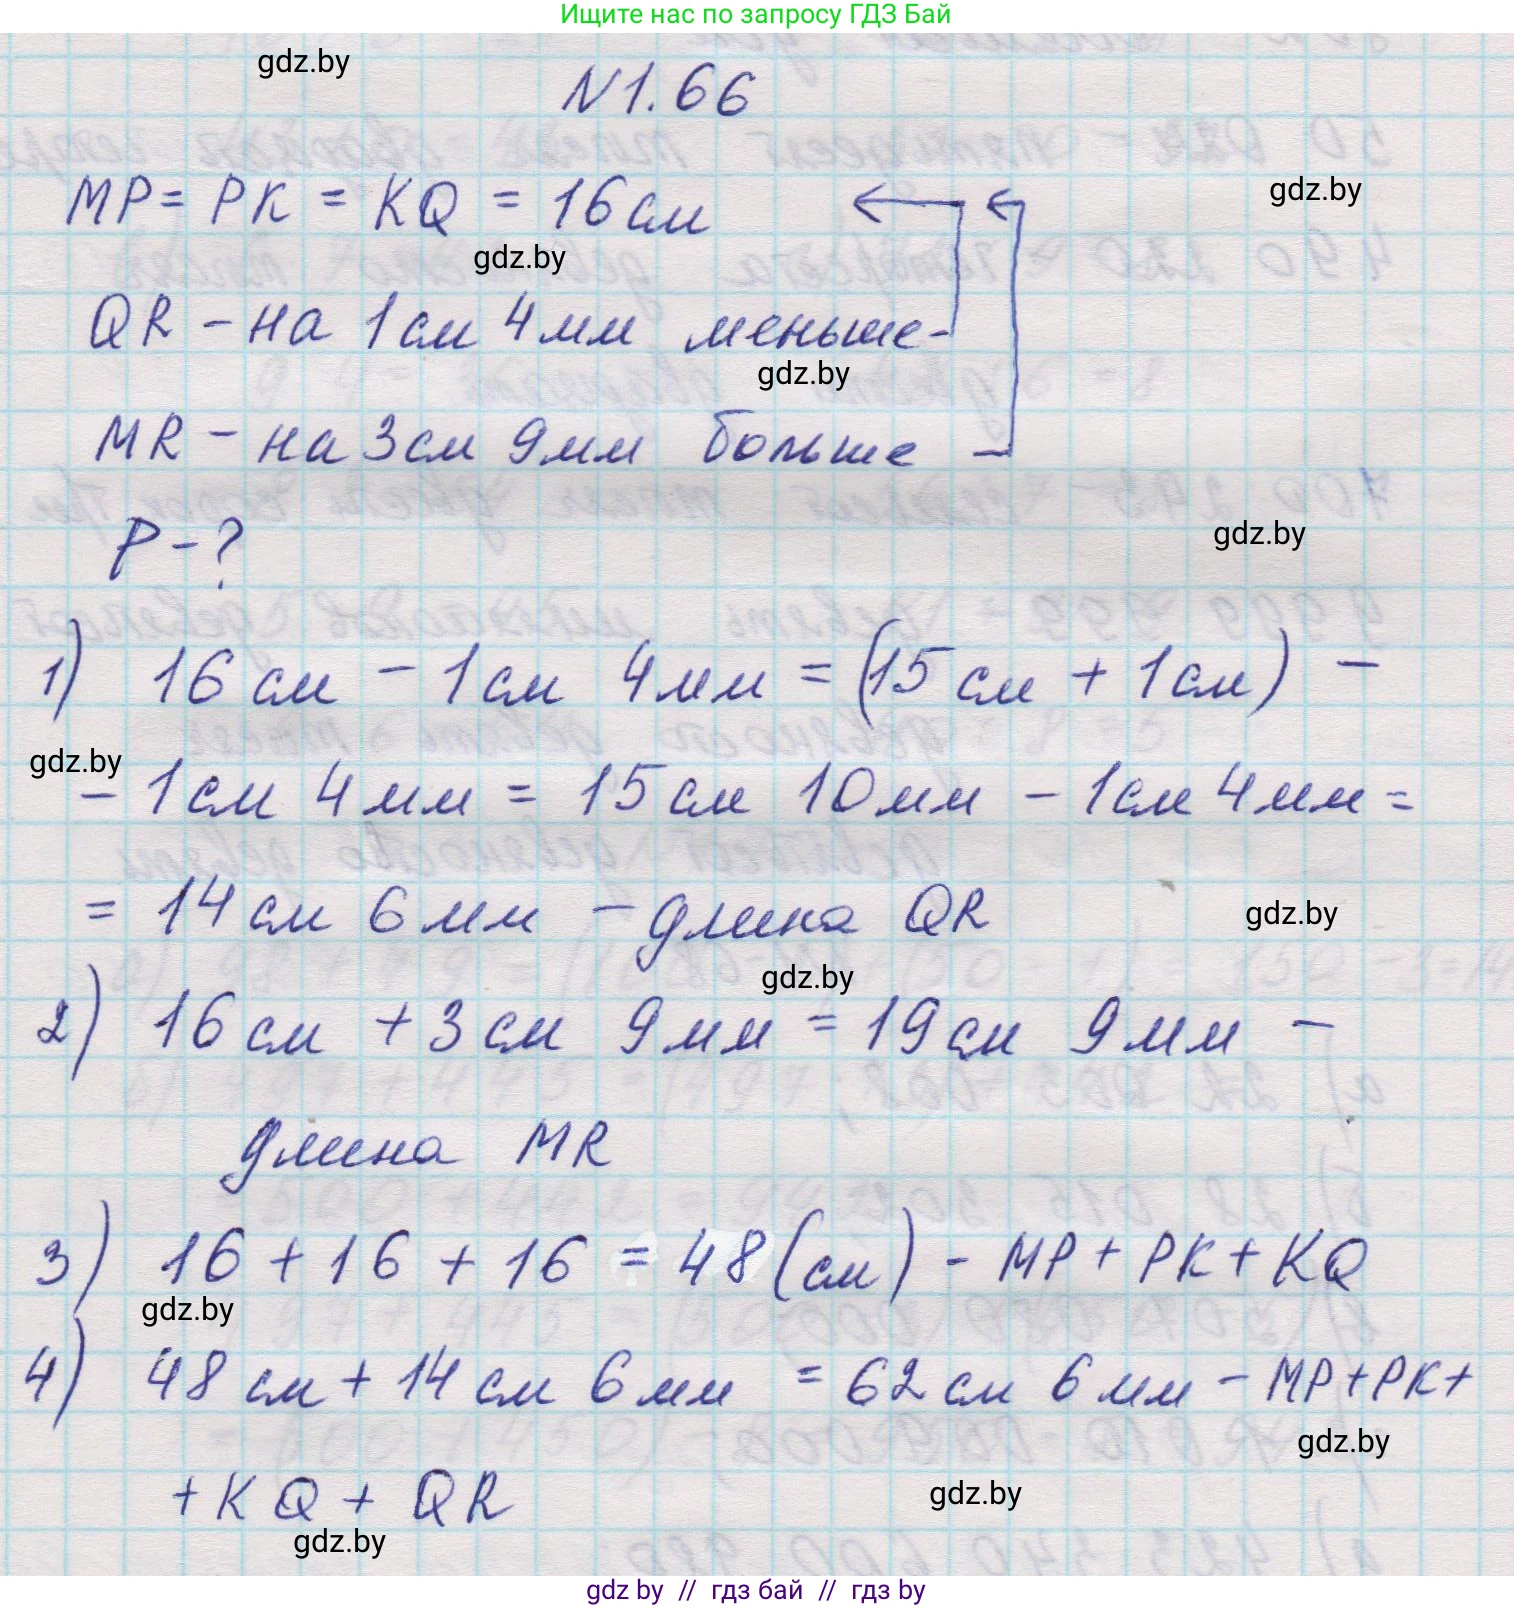 Ищите нас по запросу ГДЗ Бай
gdz.by
N1.66
MP = PK = KQ = 16 см
gdz.by
gdz.by
QR - на 1 см 4 мм меньше -
gdz.by
MR - на 3 см 9 мм больше -
P - ?
gdz.by
1) 16 см - 1 см 4 мм = (15 см + 1 см) -
gdz.by
- 1 см 4 мм = 15 см 10 мм - 1 см 4 мм =
= 14 см 6 мм - длина QR
gdz.by
gdz.by
2) 16 см + 3 см 9 мм = 19 см 9 мм -
длина MR
3) 16 + 16 + 16 = 48 (см) - MP + PK + KQ
gdz.by
4) 48 см + 14 см 6 мм = 62 см 6 мм - MP + PK +
gdz.by
+ KQ + QR
gdz.by
gdz.by
gdz by // гдз бай // гдз by